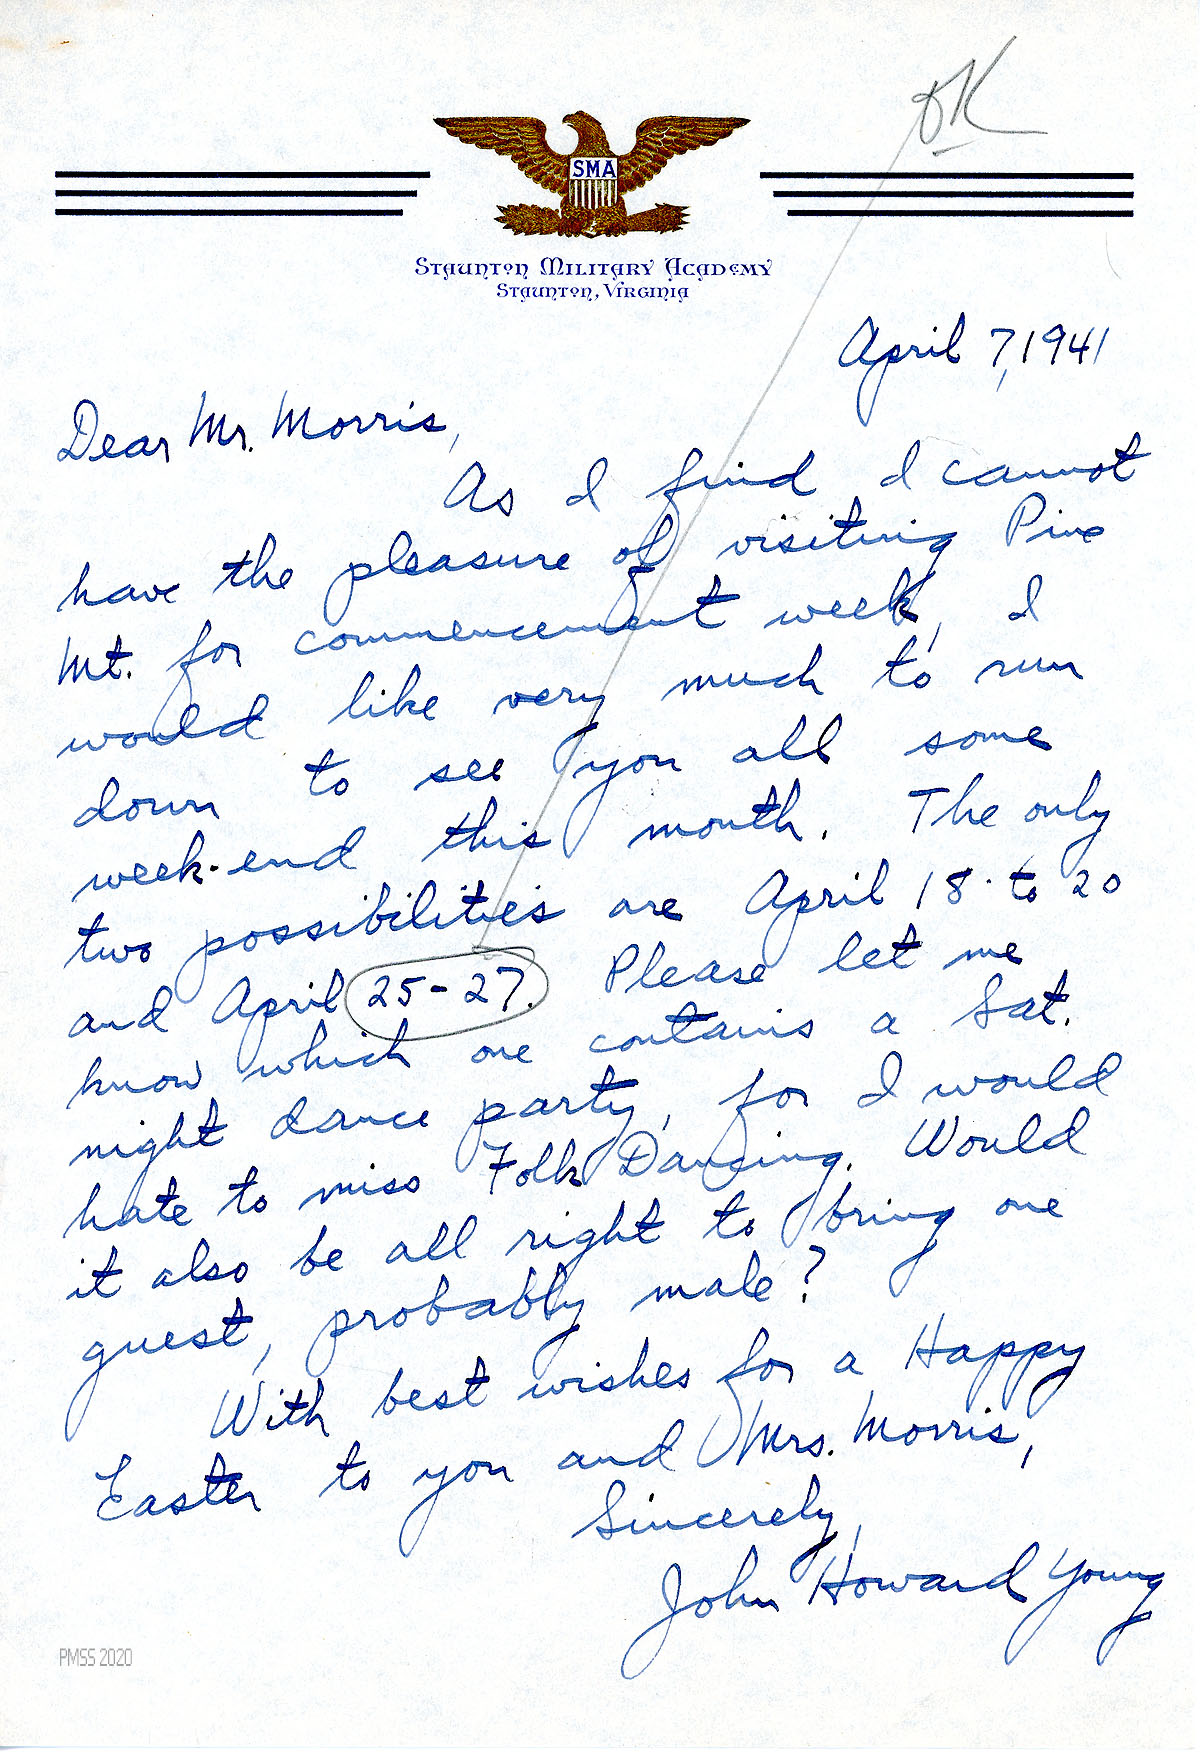 OK
SMA
Staunton Military Academy
Staunton, Virginia
April 7, 1941
Dear Mr. Morris,
As I find I cannot
have the pleasure of visiting Pine
Mt. for commencement week, I
would like very much to run
down to see you all some
week-end this month. The only
two possibilities are April 18 to 20
and April 25-27. Please let me
know which one contains a Sat.
night dance party, for I would
hate to miss Folk Dancing. Would
it also be all right to bring one
guest, probably male?
With best wishes for a Happy
Easter to you and Mrs. Morris,
Sincerely,
John Howard Young
PMSS 2020